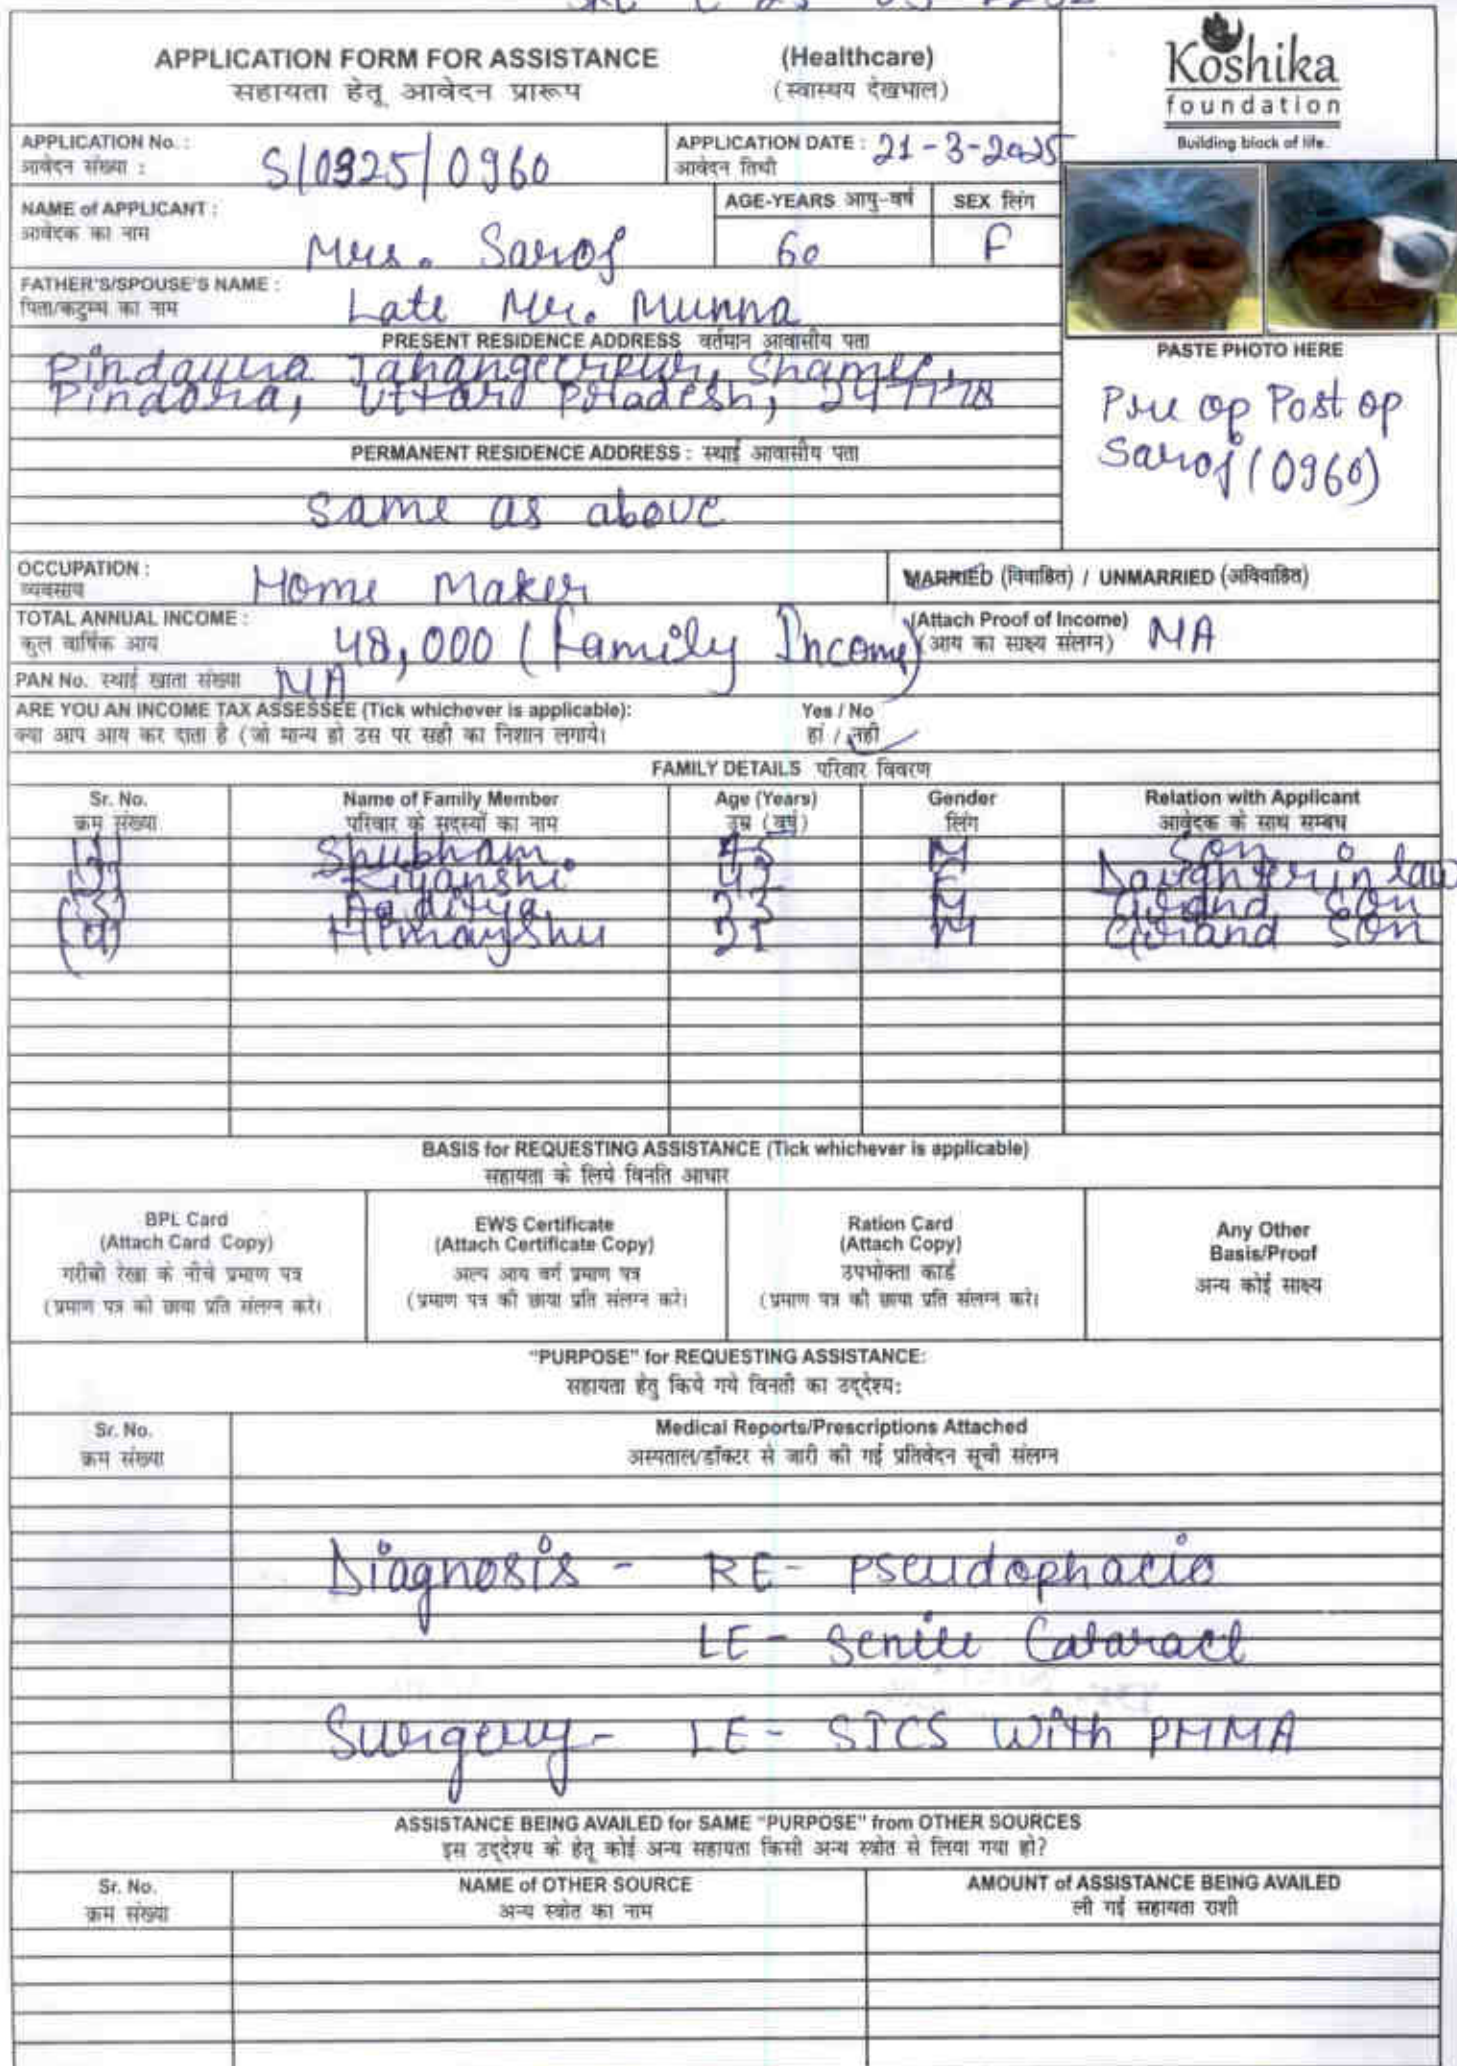 APPLICATION FORM FOR ASSISTANCE (Healthcare)
सहायता हेतू आवेदन प्रारूप (स्वास्थय देखभाल)
Koshika
foundation
Building block of life.
APPLICATION No. :
आवेदन संख्या :
S/0325/0960
APPLICATION DATE : 21-3-2025
आवेदन तिथी
NAME of APPLICANT :
आवेदक का नाम
Mrs. Saroj
AGE-YEARS आयु-वर्ष
60
SEX लिंग
F
FATHER'S/SPOUSE'S NAME :
पिता/कटुम्ब का नाम
Late Mr. Munna
PRESENT RESIDENCE ADDRESS वर्तमान आवासीय पता
Pindaura Jahangeerpur, Shamli,
Pindora, Uttar Pradesh,
PERMANENT RESIDENCE ADDRESS : स्थाई आवासीय पता
Same as above
PASTE PHOTO HERE
Pre op Post op
Saroj (0960)
OCCUPATION :
व्यवसाय
Home Maker
MARRIED (विवाहित) / UNMARRIED (अविवाहित)
TOTAL ANNUAL INCOME :
कुल वार्षिक आय
48,000 (Family Income)
(Attach Proof of Income)
(आय का साक्ष्य संलग्न)
NA
PAN No. स्थाई खाता संख्या NA
ARE YOU AN INCOME TAX ASSESSEE (Tick whichever is applicable): Yes / No
क्या आप आय कर दाता है (जो मान्य हो उस पर सही का निशान लगाये। हां / नही
FAMILY DETAILS परिवार विवरण
Sr. No. Name of Family Member Age (Years) Gender Relation with Applicant
क्रम संख्या परिवार के सदस्यों का नाम उम्र (वर्ष) लिंग आवेदक के साथ सम्बध
(1) Shubham 45 M Son
(2) 42 F Daughter in law
(3) Aaditya 23 M Grand Son
(4) Himanshu 21 M Grand Son
BASIS for REQUESTING ASSISTANCE (Tick whichever is applicable)
सहायता के लिये विनति आधार
BPL Card
(Attach Card Copy)
गरीबी रेखा के नीचे प्रमाण पत्र
(प्रमाण पत्र की छाया प्रति संलग्न करे।
EWS Certificate
(Attach Certificate Copy)
अल्प आय वर्ग प्रमाण पत्र
(प्रमाण पत्र की छाया प्रति संलग्न करे।
Ration Card
(Attach Copy)
उपभोक्ता कार्ड
(प्रमाण पत्र की छाया प्रति संलग्न करे।
Any Other
Basis/Proof
अन्य कोई साक्ष्य
"PURPOSE" for REQUESTING ASSISTANCE:
सहायता हेतु किये गये विनती का उद्देश्य:
Sr. No. Medical Reports/Prescriptions Attached
क्रम संख्या अस्पताल/डॉक्टर से जारी की गई प्रतिवेदन सूची संलग्न
Diagnosis - RE - Pseudophacia
LE - Senile Cataract
Surgery - LE - SICS With PMMA
ASSISTANCE BEING AVAILED for SAME "PURPOSE" from OTHER SOURCES
इस उद्देश्य के हेतू कोई अन्य सहायता किसी अन्य स्त्रोत से लिया गया हो?
Sr. No. NAME of OTHER SOURCE AMOUNT of ASSISTANCE BEING AVAILED
क्रम संख्या अन्य स्त्रोत का नाम ली गई सहायता राशी